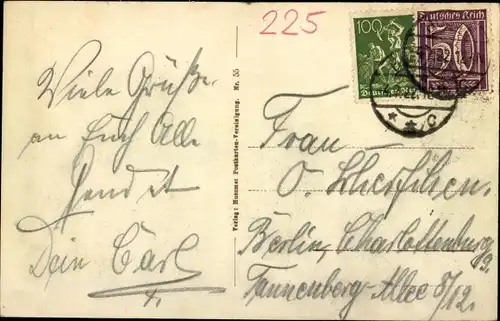 225
100
Deutsches Reich
50
Viele Grüße
an Euch Alle
sendet
Dein Carl
Verlag: Husumer Postkarten-Vereinigung. Nr. 55
Frau
O.
Berlin, Charlottenburg 9.
Tannenberg-Allee 8/12.